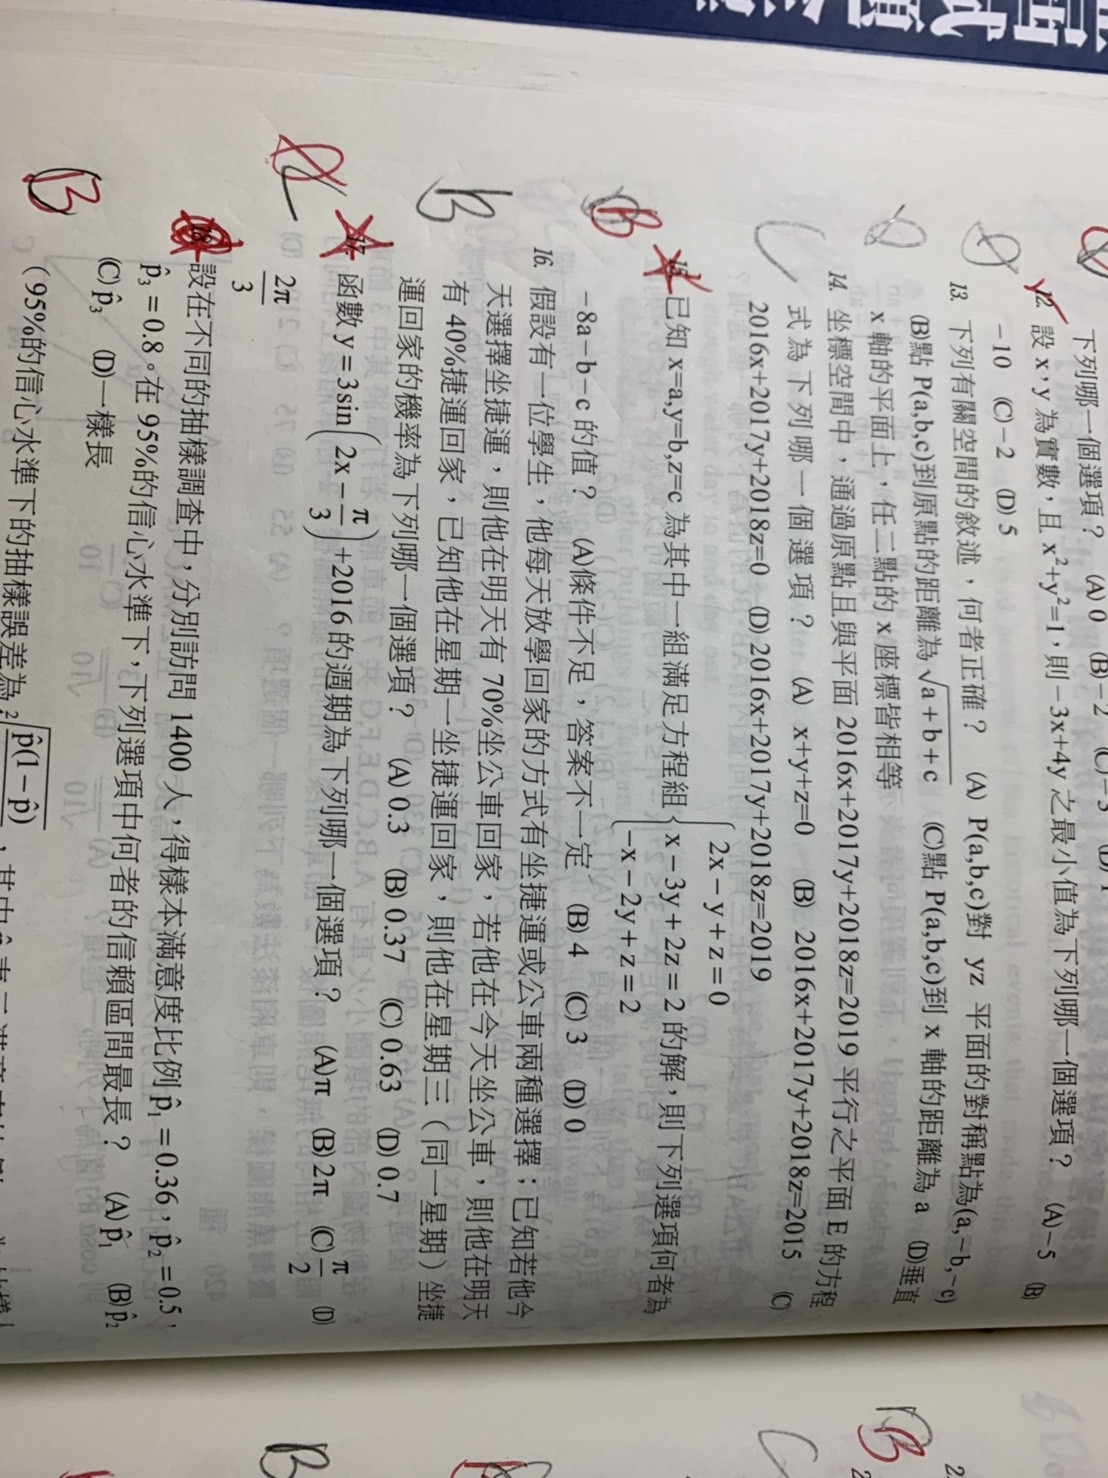 下列哪一個選項？ (A) 0 (B)−2 (C)−3
12. 設 x，y 為實數，且 x²+y²=1，則−3x+4y 之最小值為下列哪一個選項？ (A)−5 (B)
−10 (C)−2 (D) 5
13. 下列有關空間的敘述，何者正確？ (A) P(a,b,c)對 yz 平面的對稱點為(a,−b,−c)
(B)點 P(a,b,c)到原點的距離為√(a+b+c) (C)點 P(a,b,c)到 x 軸的距離為 a (D)垂直
x 軸的平面上，任二點的 x 座標皆相等
14. 坐標空間中，通過原點且與平面 2016x+2017y+2018z=2019 平行之平面 E 的方程
式為下列哪一個選項？ (A) x+y+z=0 (B) 2016x+2017y+2018z=2015 (C)
2016x+2017y+2018z=0 (D) 2016x+2017y+2018z=2019
15. 已知 x=a,y=b,z=c 為其中一組滿足方程組 { 2x−y+z=0
x−3y+2z=2 的解，則下列選項何者為
−x−2y+z=2
−8a−b−c 的值？ (A)條件不足，答案不一定 (B) 4 (C) 3 (D) 0
16. 假設有一位學生，他每天放學回家的方式有坐捷運或公車兩種選擇；已知若他今
天選擇坐捷運，則他在明天有 70%坐公車回家，若他在今天坐公車，則他在明天
有 40%捷運回家，已知他在星期一坐捷運回家，則他在星期三（同一星期）坐捷
運回家的機率為下列哪一個選項？ (A) 0.3 (B) 0.37 (C) 0.63 (D) 0.7
17. 函數 y=3sin(2x−π/3)+2016 的週期為下列哪一個選項？ (A)π (B)2π (C)π/2 (D)
2π/3
18. 設在不同的抽樣調查中，分別訪問 1400 人，得樣本滿意度比例 p̂₁=0.36，p̂₂=0.5，
p̂₃=0.8。在 95%的信心水準下，下列選項中何者的信賴區間最長？ (A) p̂₁ (B) p̂₂
(C) p̂₃ (D)一樣長
（95%的信心水準下的抽樣誤差為 2√(p̂(1−p̂)
D
C
B
B
B
B
C
B